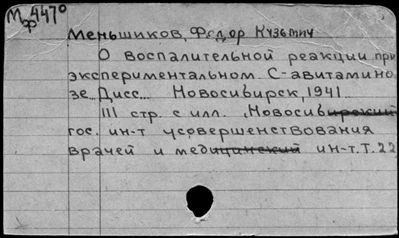 М 447°
ф
Меньшиков, Федор Кузьмич
О воспалительной реакции при
экспериментальном С-авитамино
зе. Дисс... Новосибирск, 1941.
III стр. с илл. (Новосибирский
гос. ин-т усовершенствования
врачей и медицинский ин-т. Т. 22